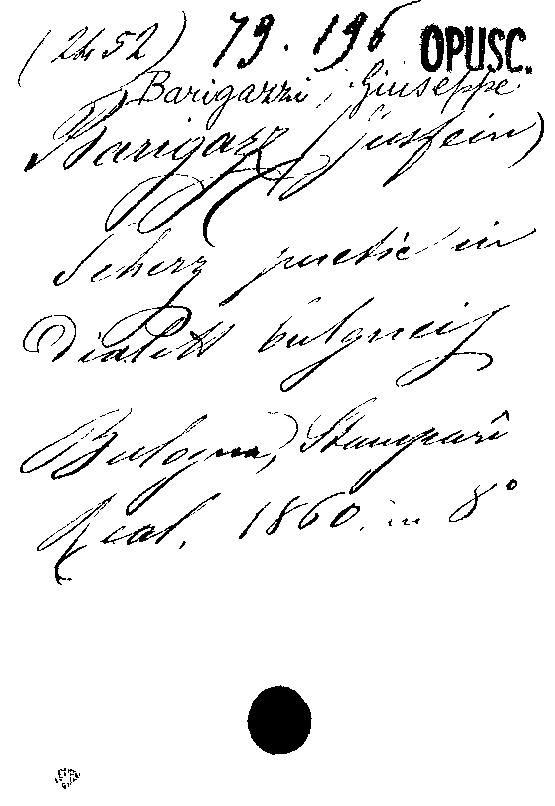 (2452) 79. 196 OPUSC.
Barigazzi, Giuseppe
Barigazz (Jusfein)
Scherz puetic in
Dialett bulgneis
Bulogna, Stamparî
Real. 1860. in 8°